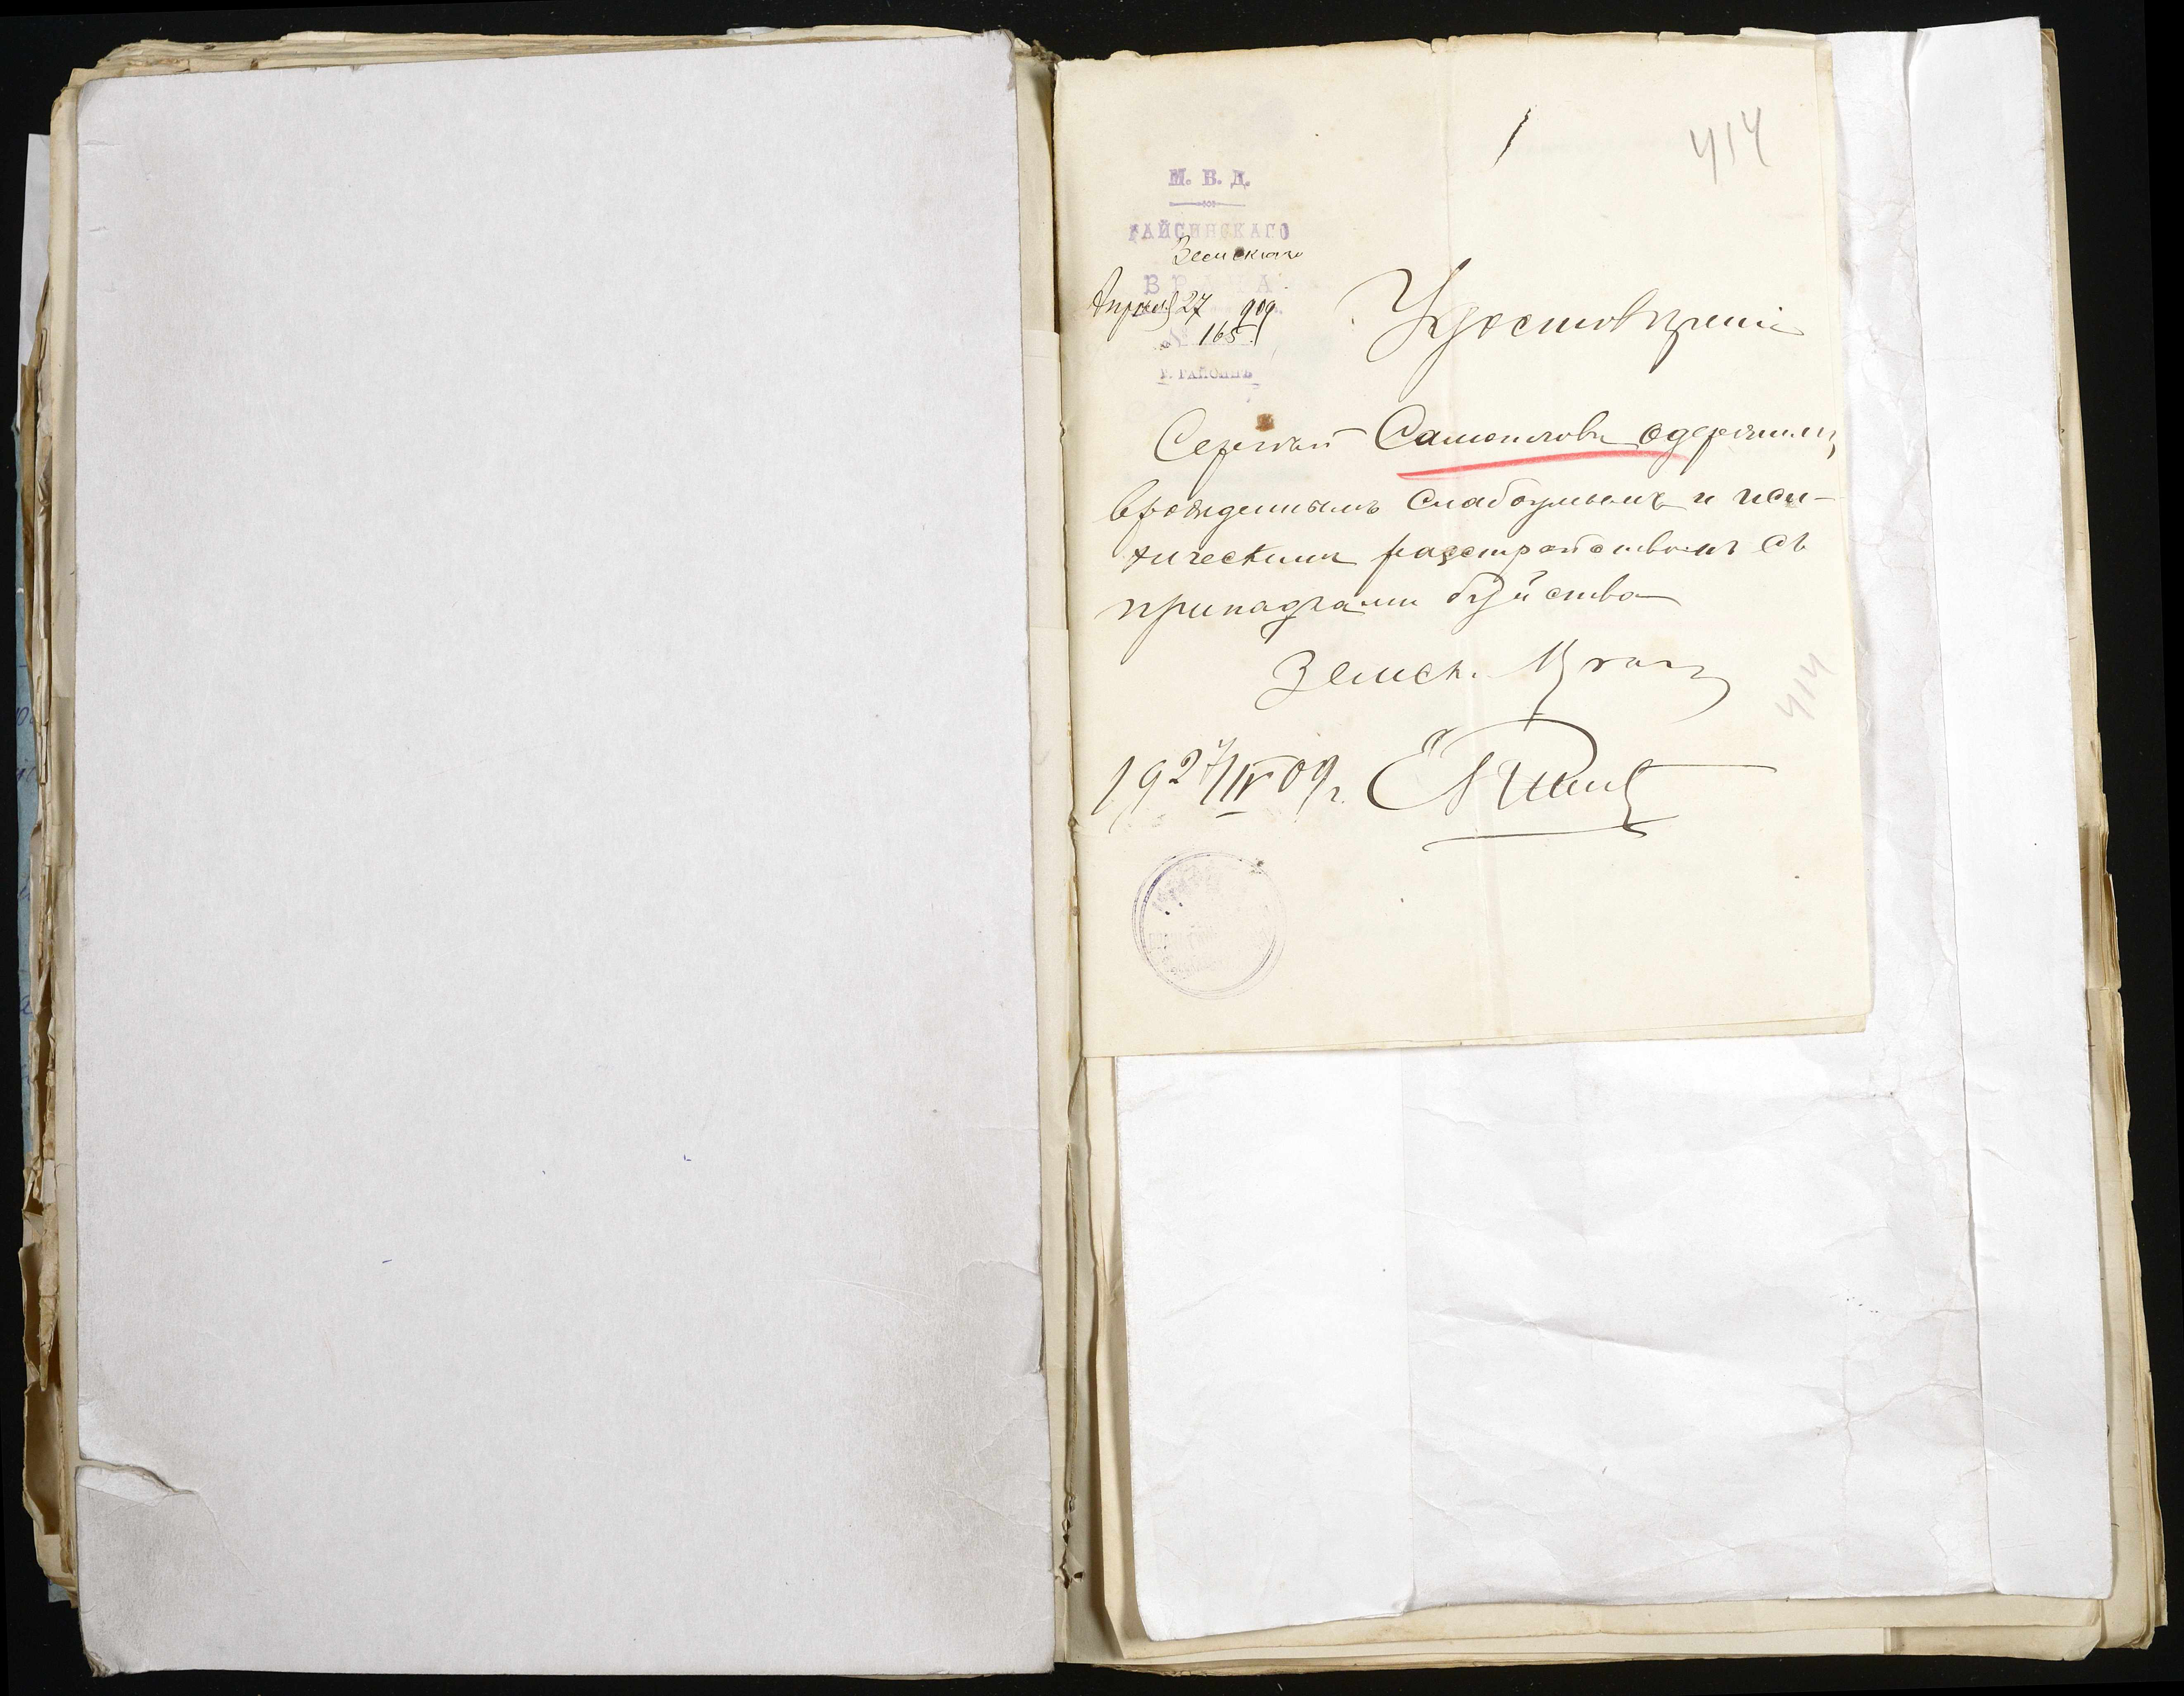 414
М. В. Д.
ГАЙСИНСКАГО
Земскаго
ВРАЧА
Апреля 27 909
№ 165.
Г. ГАЙСИНЪ
Удостовѣреніе
Сергѣй одержимъ
врожденнымъ слабоумьемъ и пси-
хическимъ разстройствомъ съ
припадками буйства
Земск. Врачъ
414
19 27/IV 09 г.